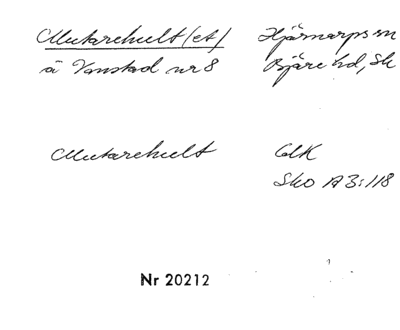 Mutarehult (et) Hjärnarps sn
å Vanstad nr 8 Bjäre hd, Sk
Mutarehult GLK
Sko A3:118
Nr 20212